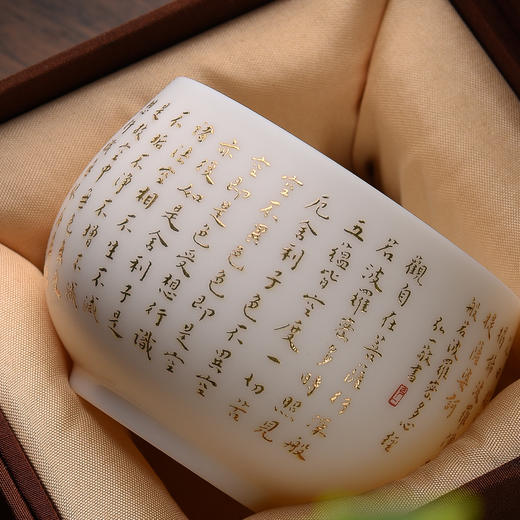 般若波羅蜜多心經
弘一敬書
觀自在菩薩行深般
若波羅蜜多時照見
五蘊皆空度一切苦
厄舍利子色不異空
空不異色色即是空
空即是色受想行識
亦復如是舍利子是
諸法空相不生不滅
不垢不淨不增不減
是故空中